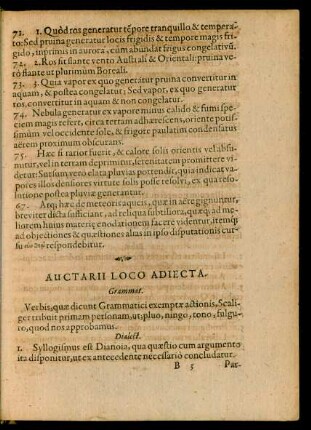 72. 1. Quòd ros generatur tẽpore tranquillo & tempera-
to: Sed pruina generatur locis frigidis & tempore magis fri-
gido, imprimis in aurora, cùm abundat frigus congelativũ.
72. 2. Ros fit flante vento Australi & Orientali: pruina ve-
rò flante ut plurimùm Boreali.
73. 3. Quia vapor ex quo generatur pruina convertitur in
aquam, & postea congelatur; Sed vapor, ex quo generatur
ros, convertitur in aquam & non congelatur.
74. Nebula generatur ex vapore minus calido & fumi spe-
ciem magis refert, circa terram adhærescens, oriente potis-
simùm vel occidente sole, & frigore paulatim condensatus
aërem proximum obscurans.
75. Hæc si rarior fuerit, & calore solis orientis vel absu-
mitur, vel in terram deprimitur, serenitatem promittere vi-
detur: Sursum verò elata pluvias portendit, quia indicat va-
pores illos densiores virtute solis posse resolvi, ex qua reso-
lutione pluviæ generantur.
67. Atq; hæc de meteoris aqueis, quæ in aëre gignuntur,
breviter dicta sufficiant, ad reliqua subtiliora, quæq; ad me-
liorem huius materiæ enodationem facere videntur, itemq;
ad objectiones & quæstiones alias in ipso disputationis cur-
su respondebitur.
AUCTARII LOCO ADIECTA.
Grammat.
Verbis, quæ dicunt Grammatici exemptæ actionis, Scali-
ger tribuit primam personam, ut; pluo, ningo, tono, fulgu-
ro, quod nos approbamus.
Dialect.
1. Syllogismus est Dianoia, qua quæstio cum argumento
ita disponitur, ut ex antecedente necessariò concludatur.
B 5 Par-